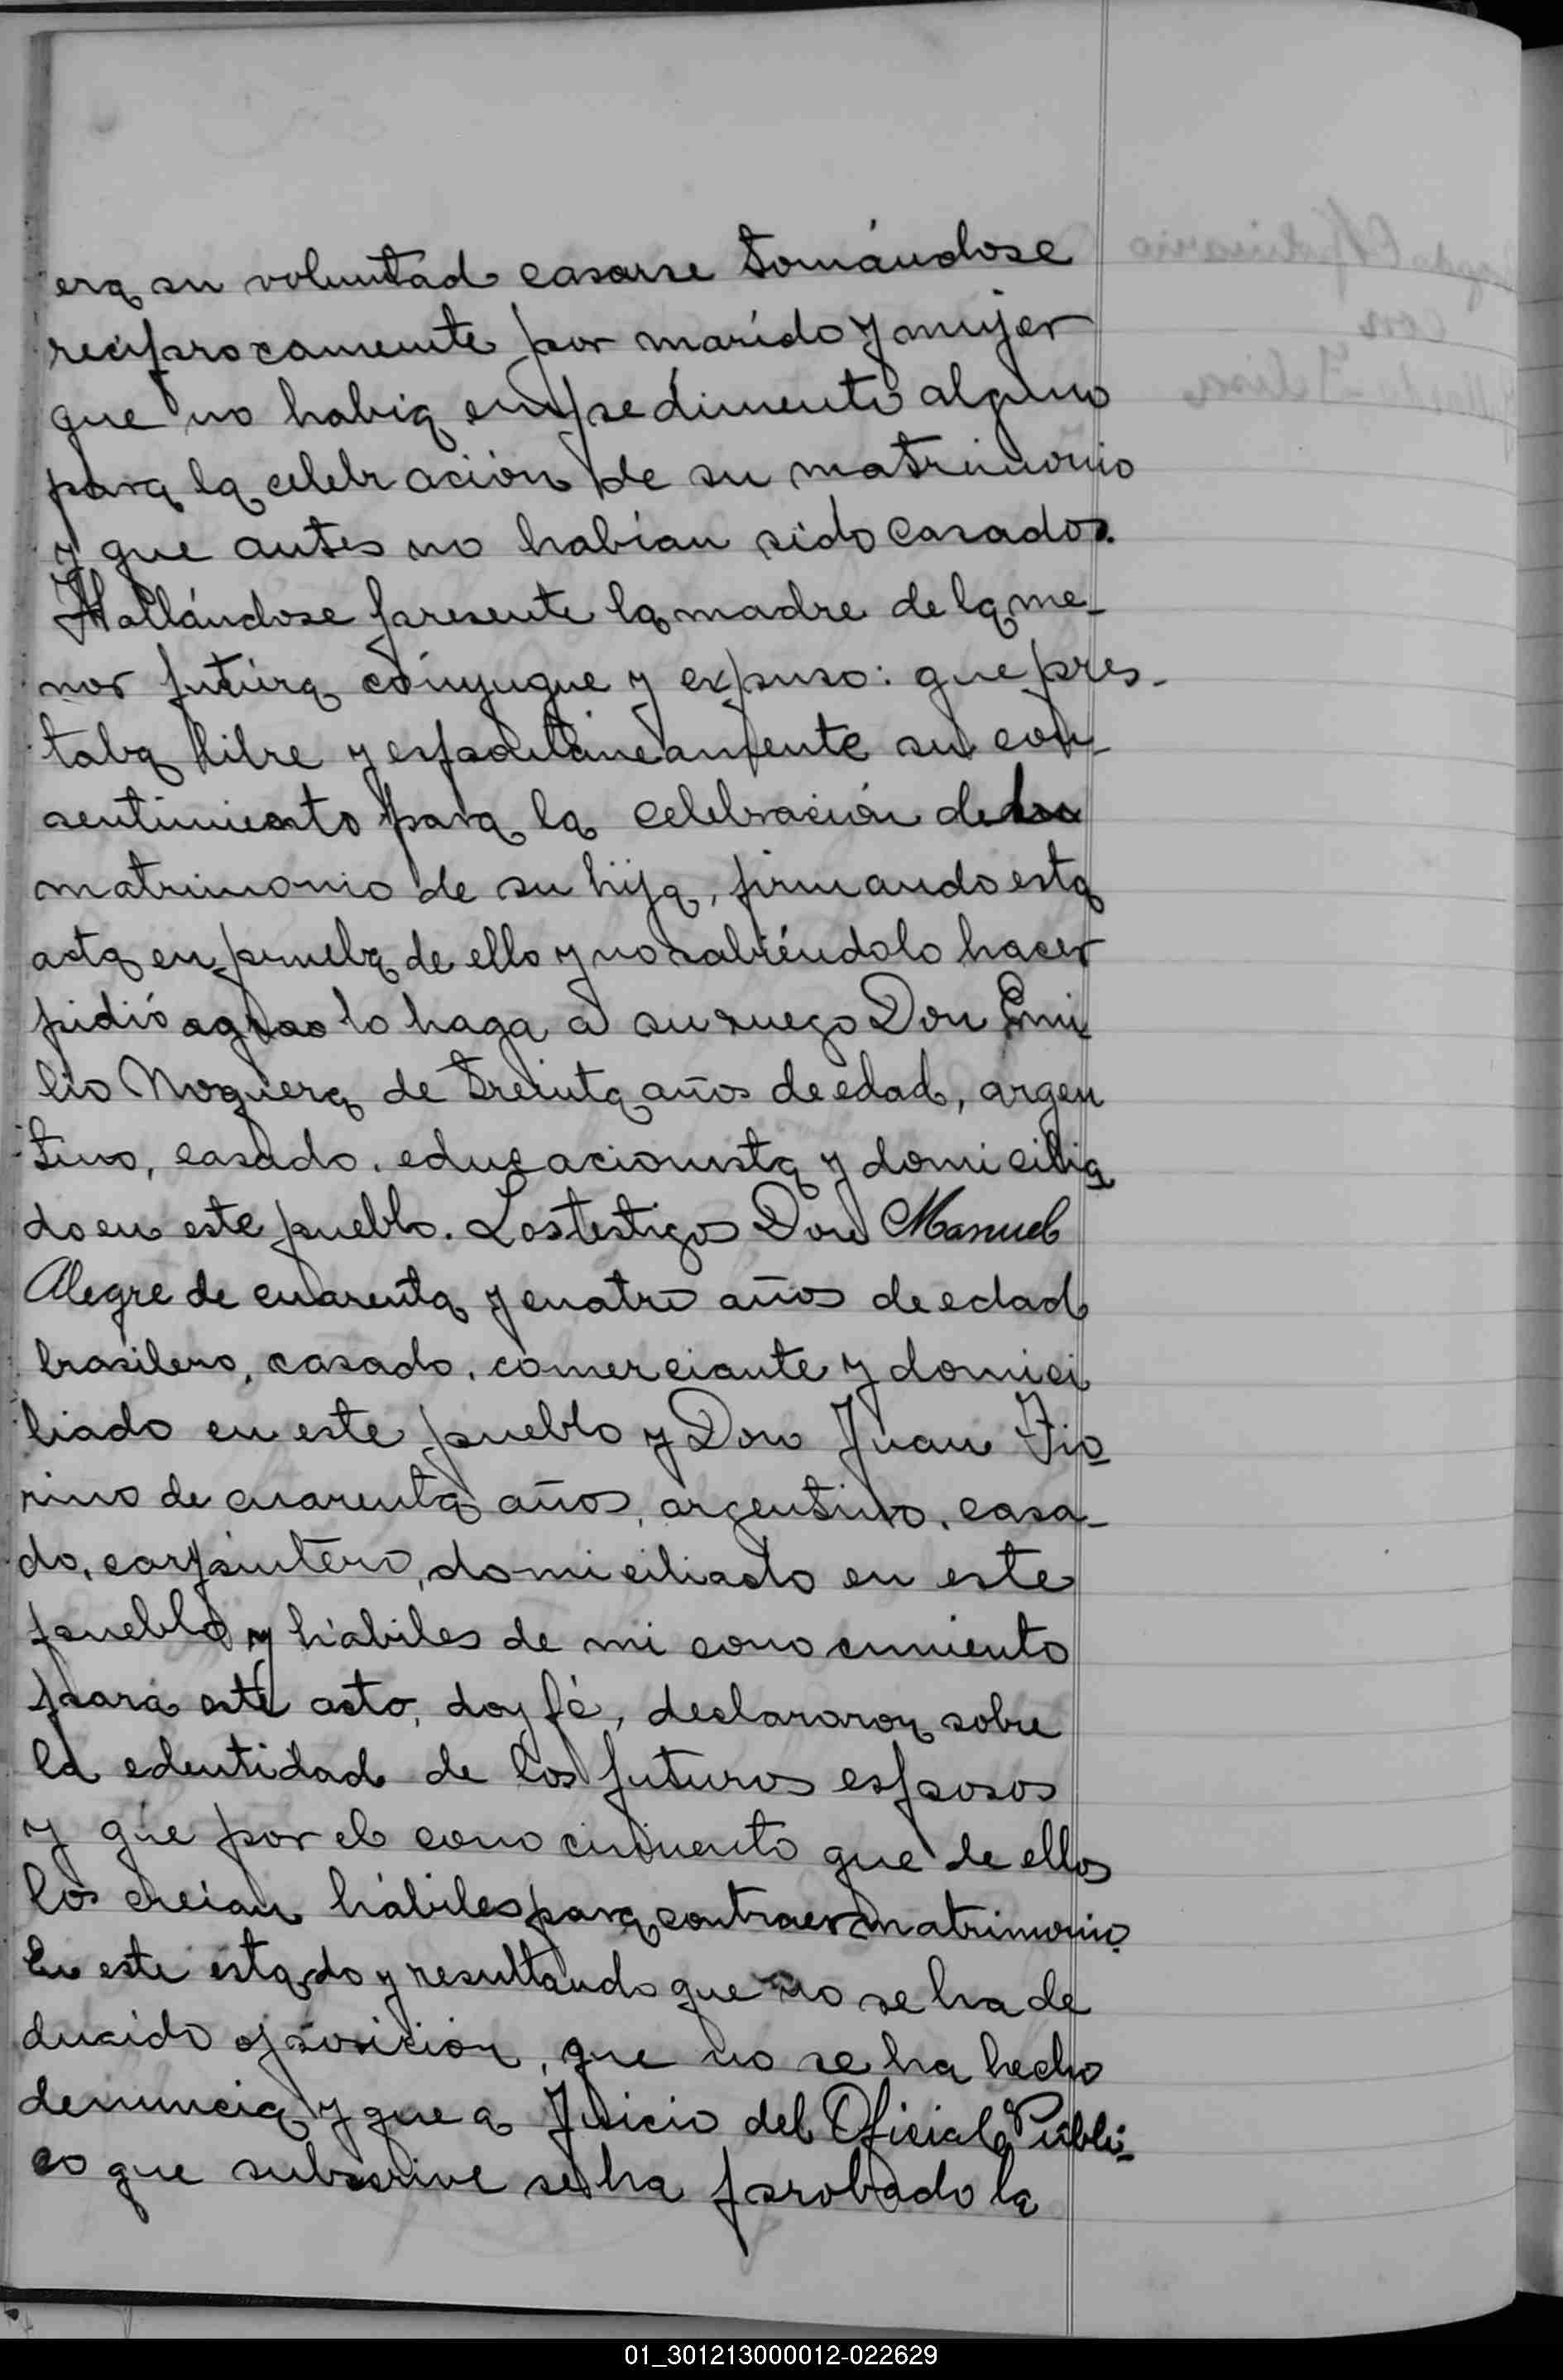 era su voluntad casarse tomándose
reciprocamente por marido y mujer
que no habia empedimento alguno
para la celebración de su matrimonio
y que antes no habían sido casados.
Hallándose presente la madre de la me-
nor futura cónyugue y expuso: que pres-
taba libre y espontáneamente su con-
sentimiento para la celebración de
matrimonio de su hija, firmando esta
acta en prueba de ello y no sabiéndolo hacer
pidió lo haga a su ruego Don Emi
lio Noguera de treinta años de edad, argen
tino, casado, educacionista y domicilia
do en este pueblo. Los testigos Don Manuel
Alegre de cuarenta y cuatro años de edad
brasilero, casado, comerciante y domici
liado en este pueblo y Don Juan Fio
rino de cuarenta años, argentino, casa-
do, carpintero, domiciliado en este
pueblo y hábiles de mi conocimiento
para este acto, doy fé, declararon sobre
la edentidad de los futuros esposos
y que por el conocimiento que de ellos
los creian hábiles para contraer matrimonio.
En este estado y resultando que no se ha de
ducido oposicion, que no se ha hecho
denuncia y que a Juicio del Oficial Públi-
co que subscrive se ha probado la
con
01_301213000012-022629